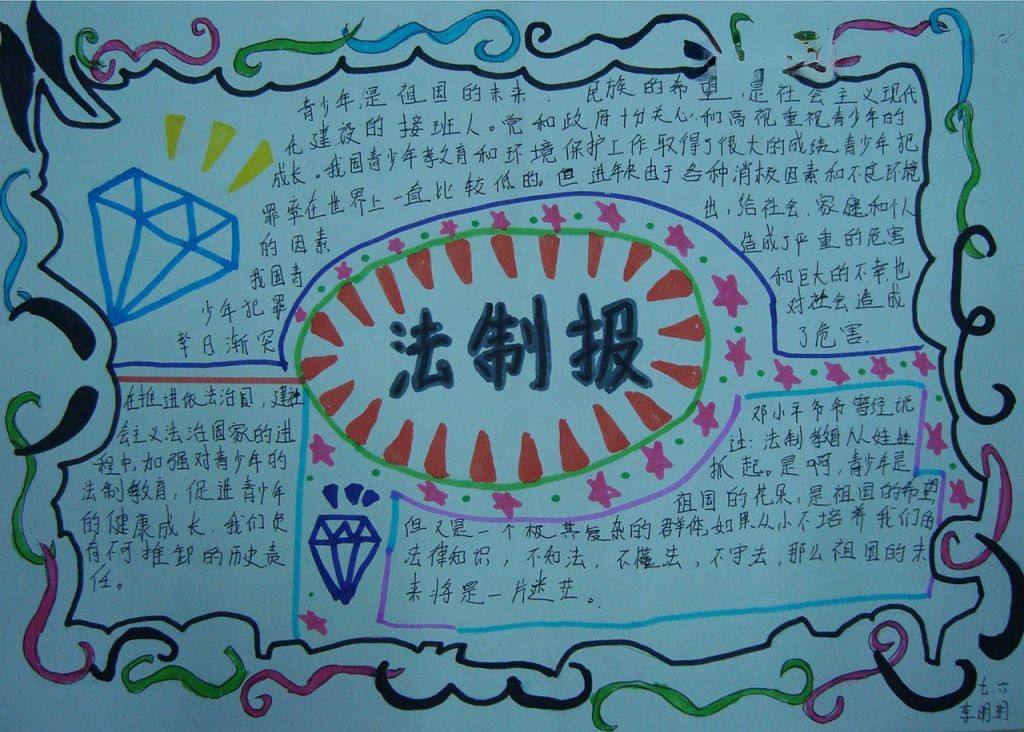 青少年,是祖国的未来.民族的希望,是社会主义现代
化建设的接班人。党和政府十分关心,和高视重视青少年的
成长。我国青少年教育和环境保护工作取得了很大的成绩.青少年犯
罪率在世界上一直比较低的。但进年来由于各种消极因素和不良环境
的因素
我国青
少年犯罪
率日渐突
出,给社会,家庭和个人
造成了严重的危害
和巨大的不幸,也
对社会造成
了危害.
法制报
在推进依法治国,建社
会主义法治国家的进
程中,加强对青少年的
法制教育,促进青少年
的健康成长,我们负
有不可推卸的历史责
任。
邓小平爷爷曾经说
过:法制教育从娃娃
抓起。是啊,青少年是
祖国的花朵,是祖国的希望
但又是一个极其复杂的群体,如果从小不培养我们的
法律知识,不知法,不懂法,不守法,那么祖国的未
来将是一片迷茫。
七.六
李明